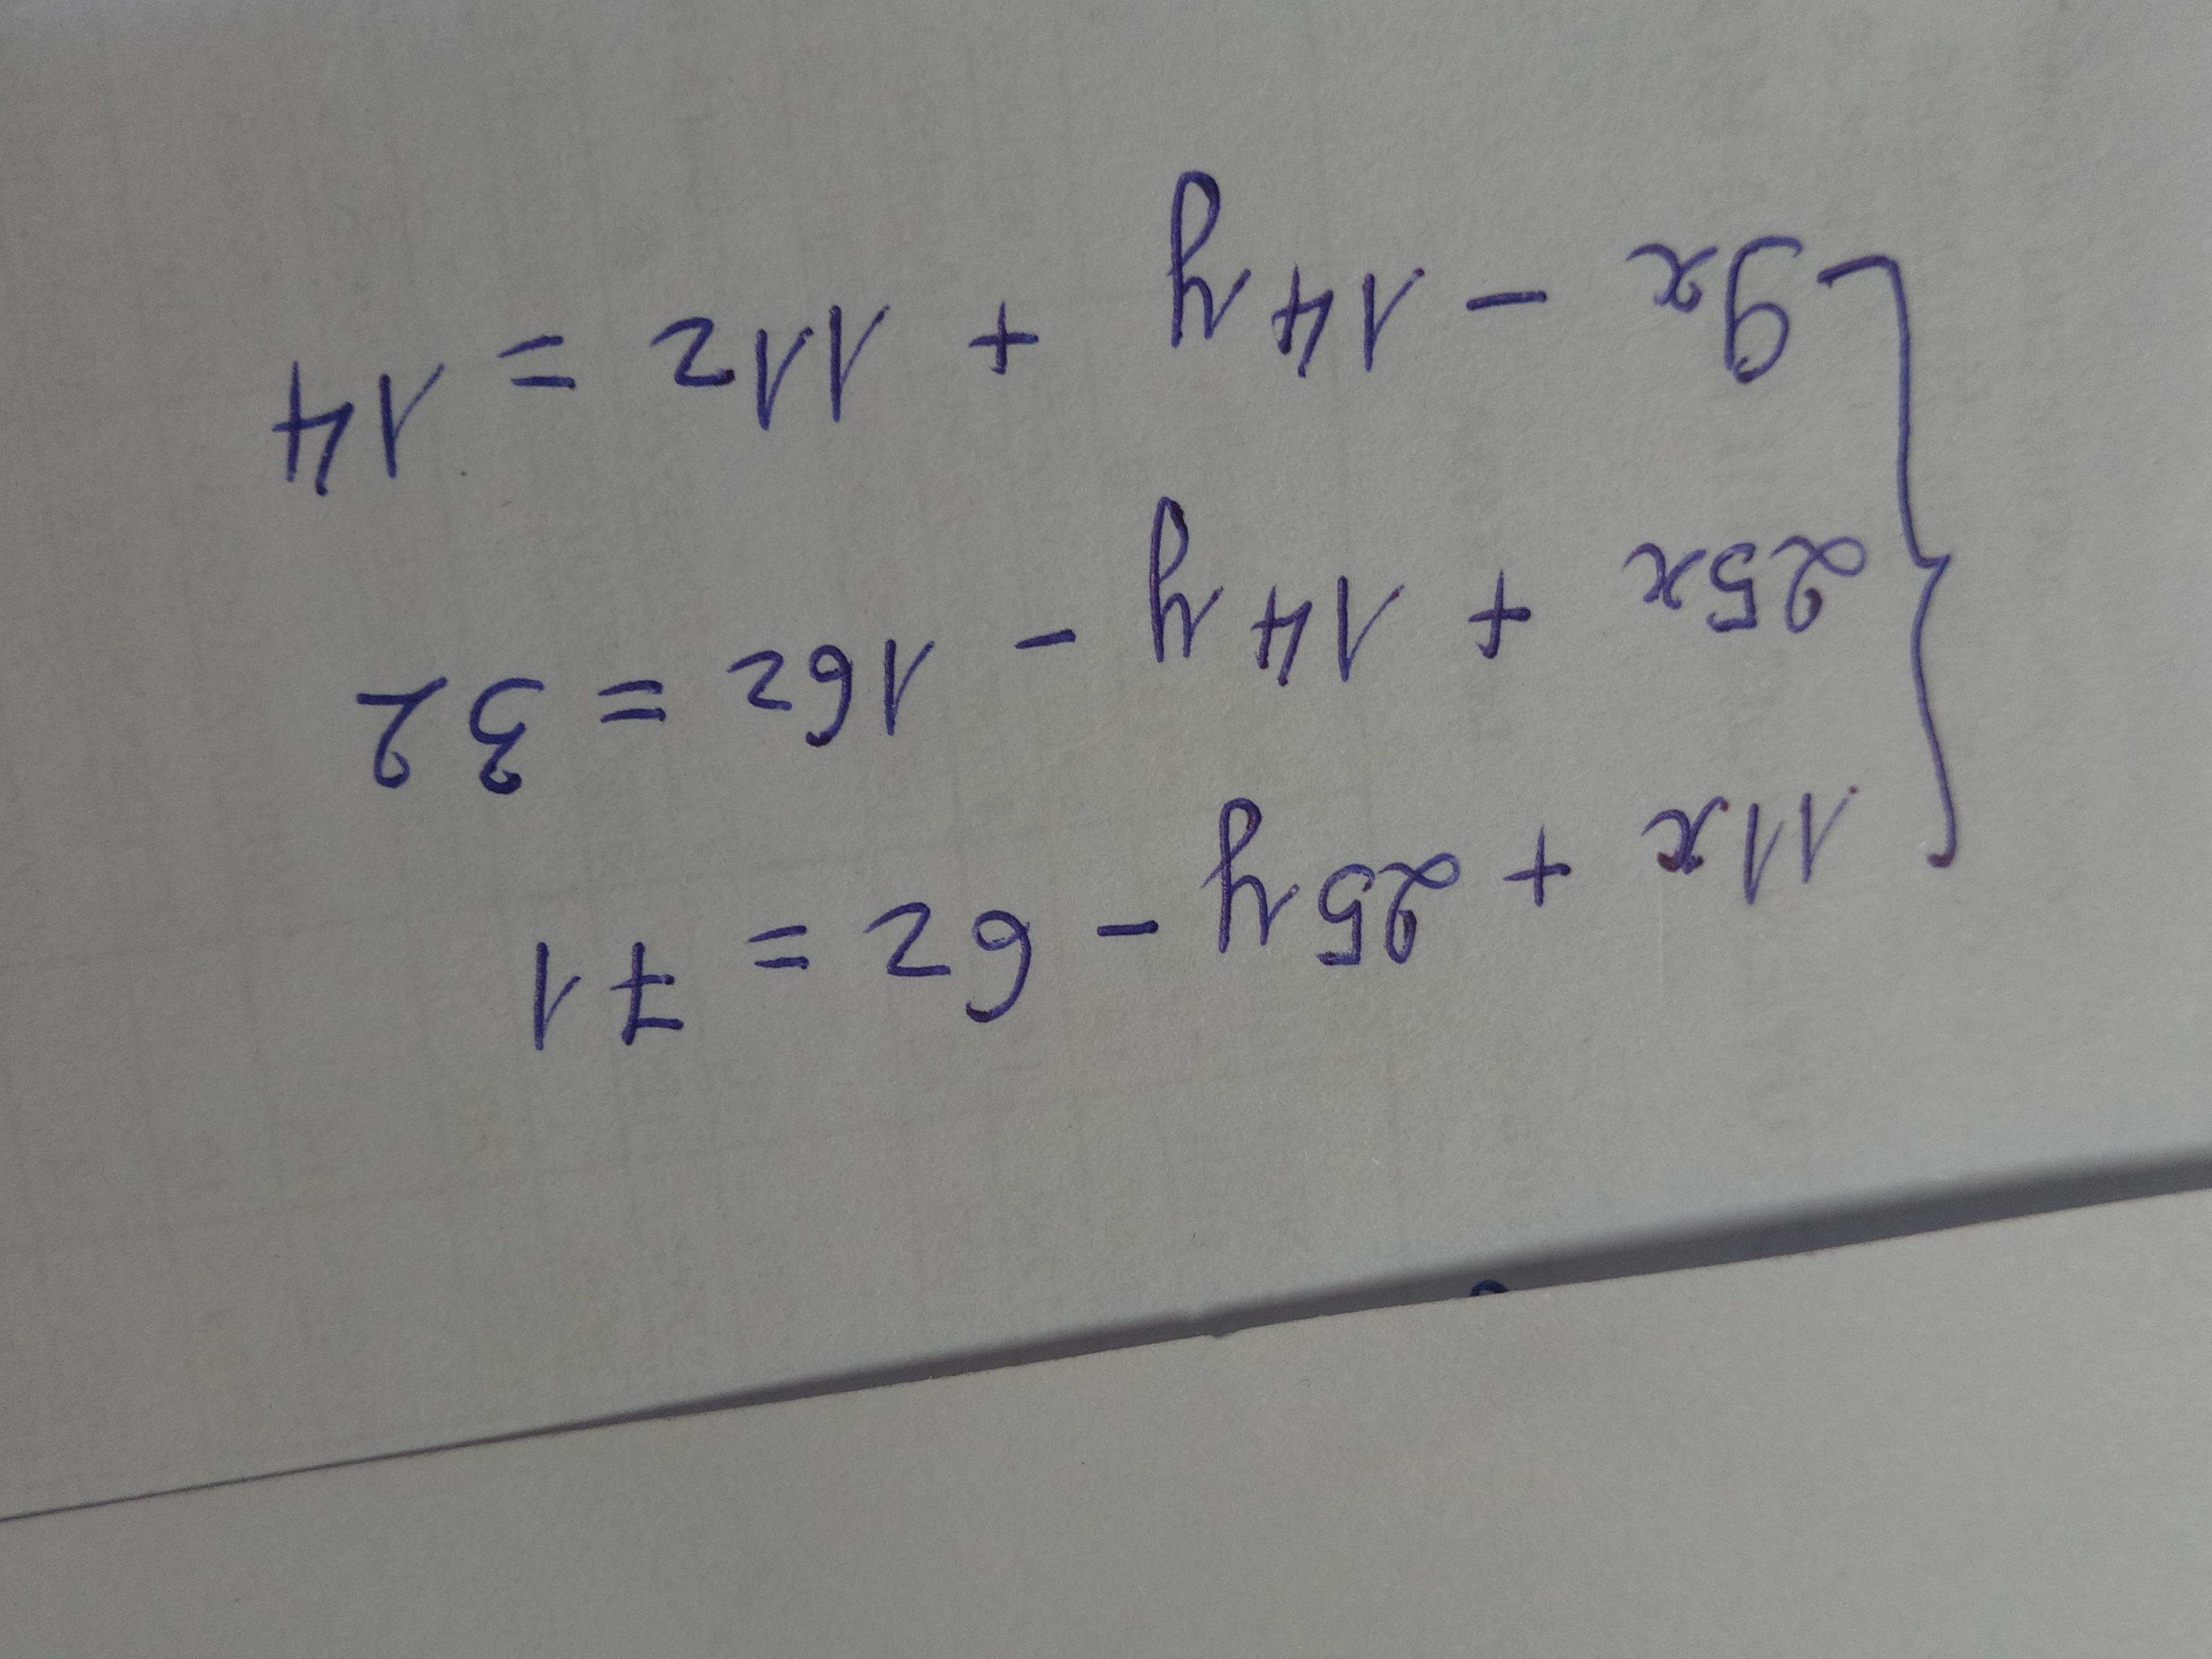 11x + 25y - 6z = 71
25x + 14y - 16z = 32
9x - 14y + 11z = 14